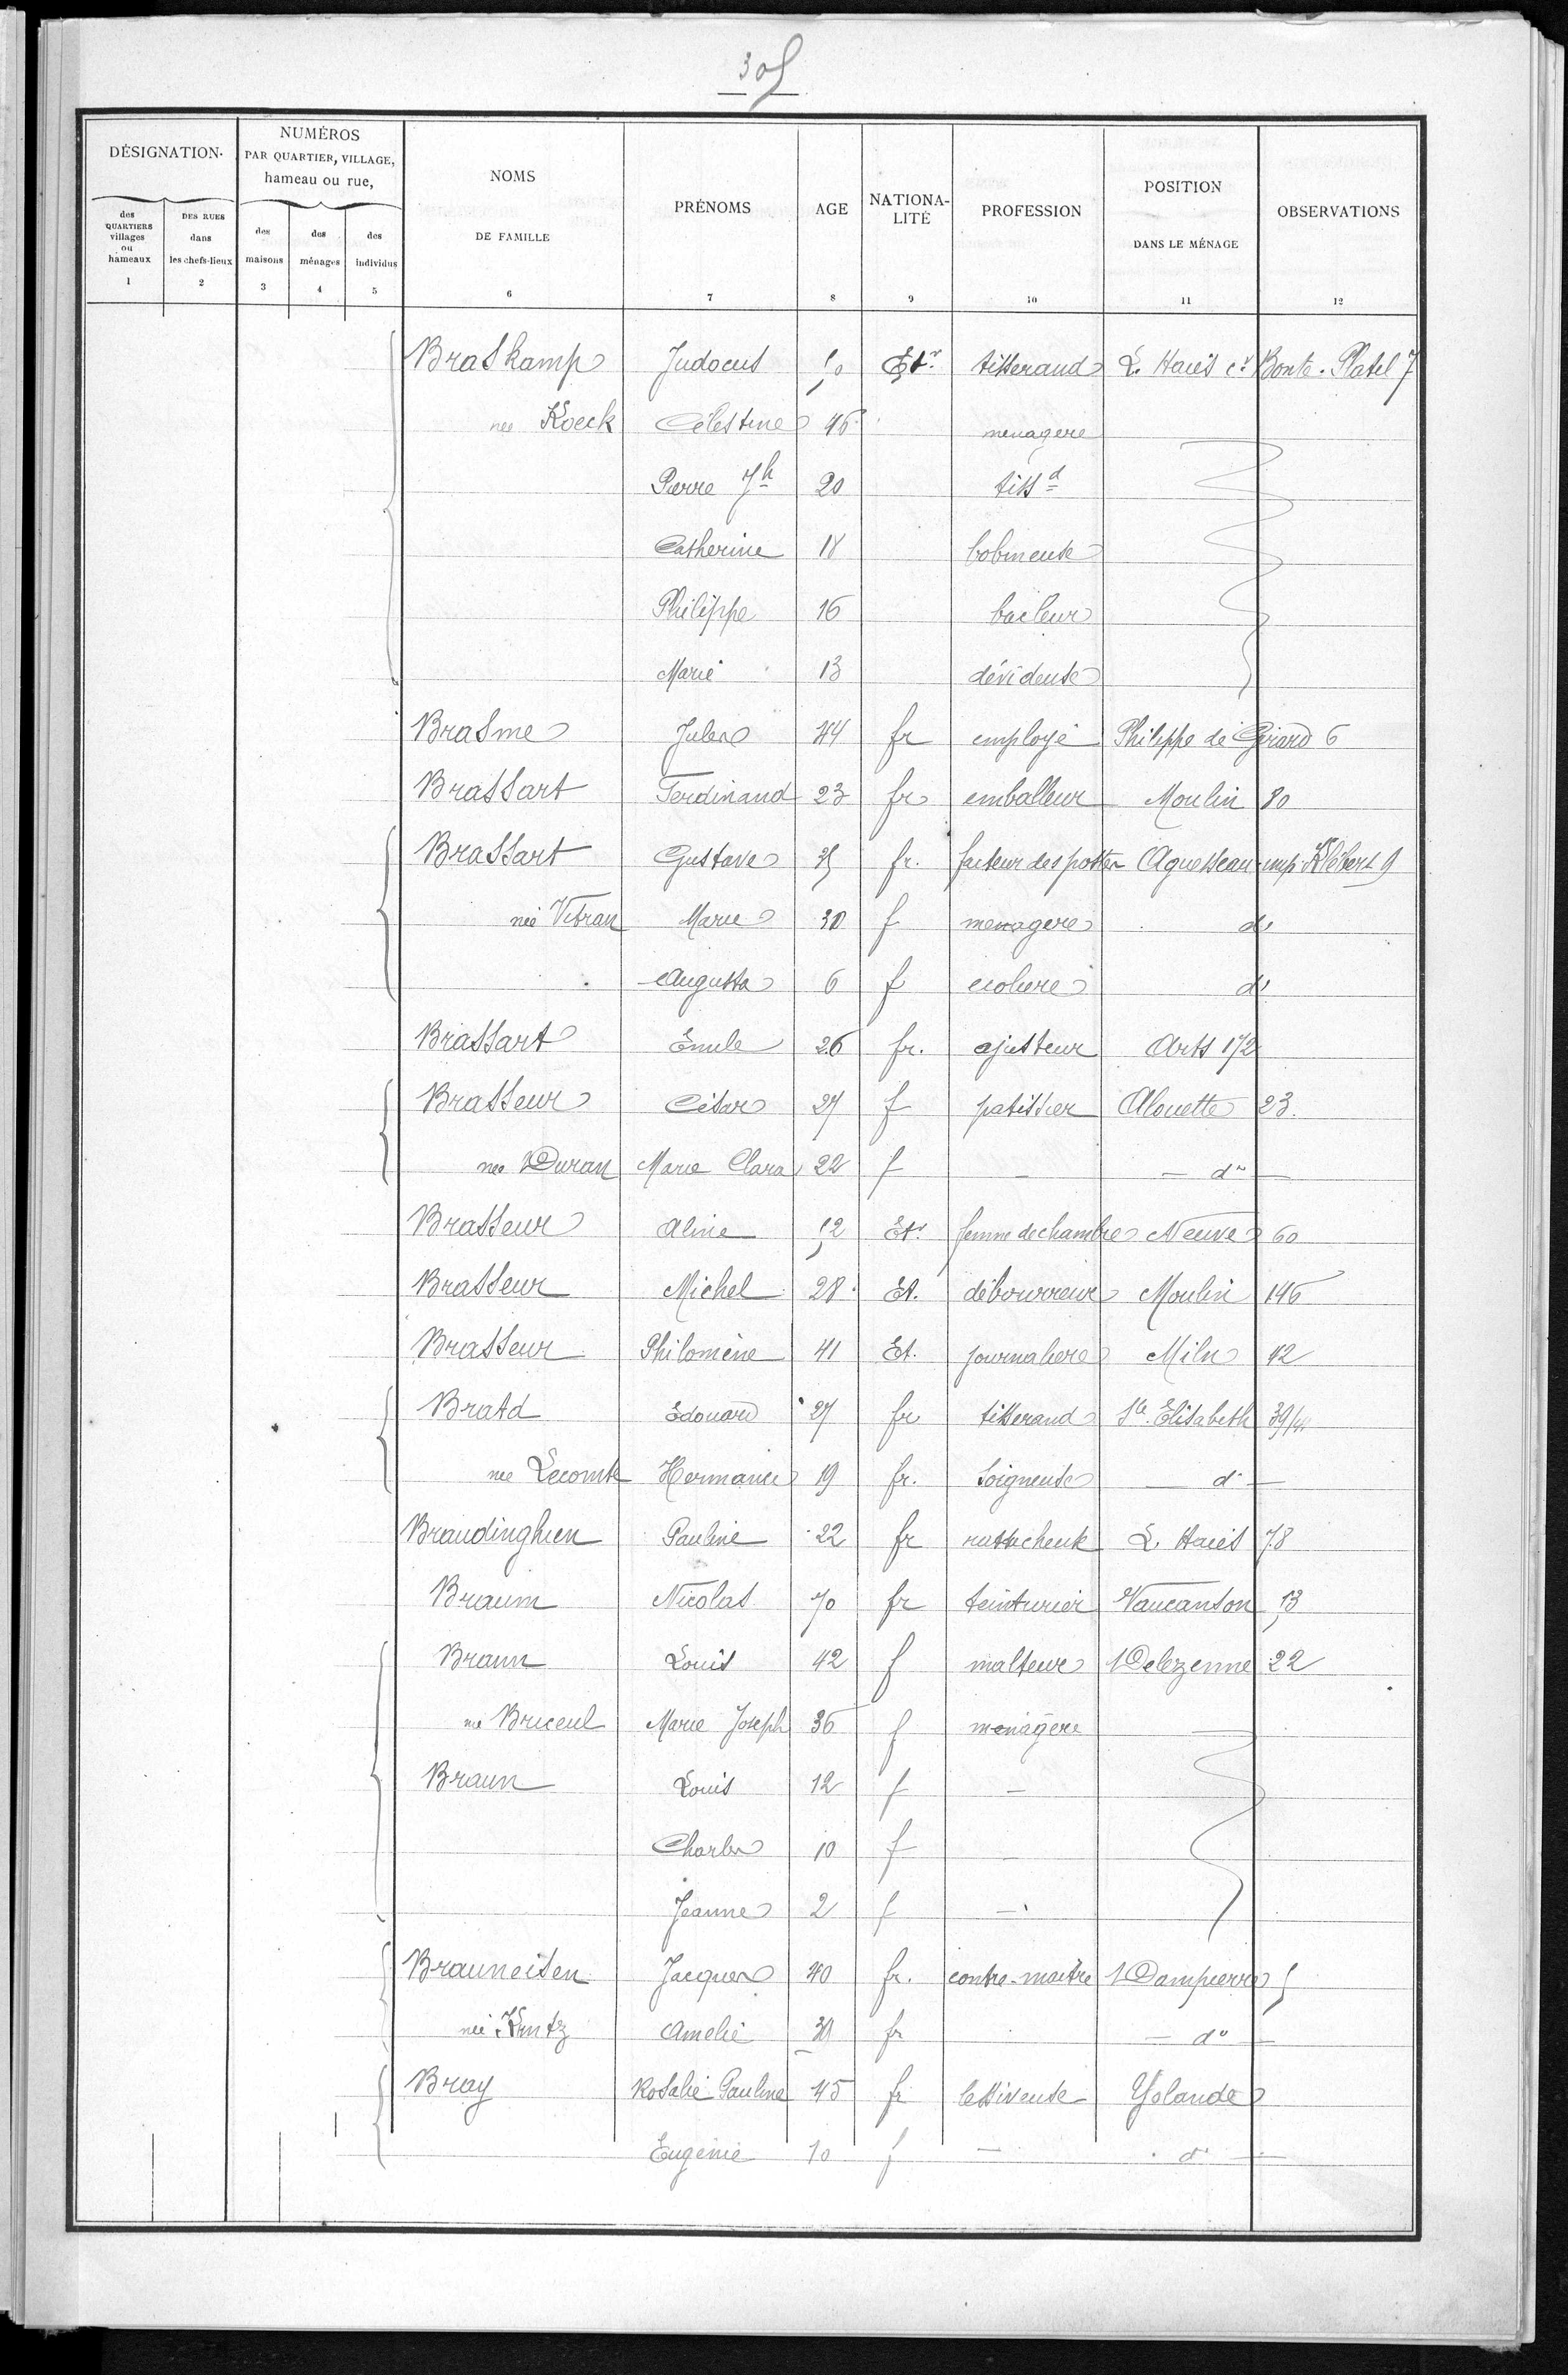 305
DÉSIGNATION. NUMÉROS PAR QUARTIER, VILLAGE, hameau ou rue, NOMS DE FAMILLE PRÉNOMS AGE NATIONALITÉ PROFESSION POSITION DANS LE MÉNAGE OBSERVATIONS
des QUARTIERS villages ou hameaux DES RUES dans les chefs-lieux des maisons des ménages des individus
1 2 3 4 5 6 7 8 9 10 11 12
Braskamp Judocus 50 Etr. tisserand L. Haies cr Bonte-Platel 7
née Koeck Célestine 46 menagere
Pierre Jh 20 tissd
Catherine 18 bobineuse
Philippe 16 bacleur
Marie 13 dévideuse
Brasme Jules 44 fr employé Philippe de Girard 6
Brassart Ferdinand 23 fr emballeur Moulin 80
Brassart Gustave 35 fr. facteur des postes Aguesseau imp. Klébert 9
née Vitran Marie 30 f menagere do
Augusta 6 f ecoliere do
Brassart Emile 26 fr. ajusteur Arts 172
Brasseur César 27 f patissier Alouette 23
née Duran Marie Clara 22 f — do —
Brasseur Aline 52 Etr femme de chambre Neuve 60
Brasseur Michel 28 Et. débourreur Moulin 146
Brasseur Philomène 41 Et. journaliere Miln 42
Bratd Edouard 27 fr tisserand Ste Elisabeth 39/
née Lecomte Hermance 19 fr. soigneuse — do —
Braudinghien Pauline 22 fr rattacheuse L. Haies 78
Braum Nicolas 70 fr teinturier Vaucanson 13
Braun Louis 42 f malteur Delezenne 22
née Briceul Marie Joseph 36 f menagère
Braun Louis 12 f —
Charles 10 f —
Jeanne 2 f —
Brauneisen Jacques 40 fr. contre-maitre Dampierre 5
née Kuntz Amelie 30 fr — do —
Bray Rosalie Pauline 45 fr lessiveuse Yolande
Eugénie 10 f — do —